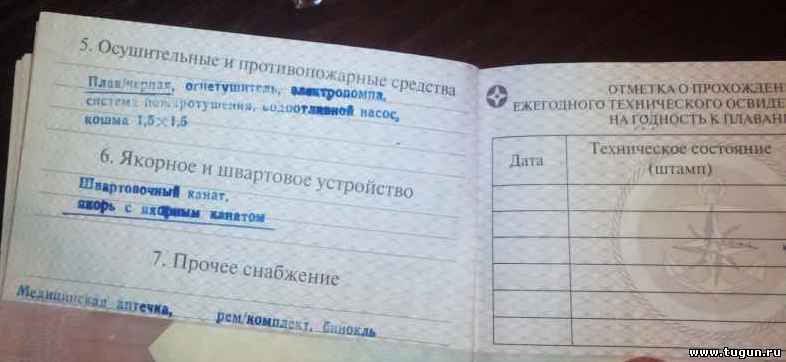 5. Осушительные и противопожарные средства
Плав/черпак, огнетушитель, электропомпа,
система пожаротушения, водоотливной насос,
кошма 1,5×1,5
6. Якорное и швартовое устройство
Швартовочный канат,
якорь с якорным канатом
7. Прочее снабжение
Медицинская аптечка, рем/комплект, бинокль
ОТМЕТКА О ПРОХОЖДЕН
ЕЖЕГОДНОГО ТЕХНИЧЕСКОГО ОСВИДЕ
НА ГОДНОСТЬ К ПЛАВАН
Дата
Техническое состояние
(штамп)
www.tugun.ru